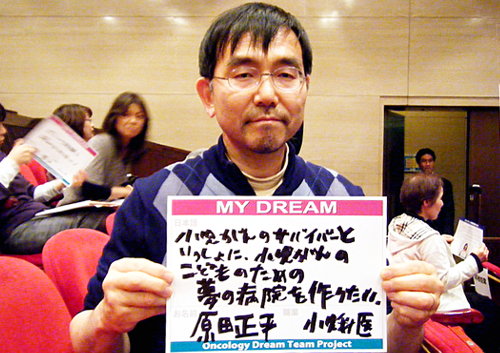 MY DREAM
小児がんのサバイバーと
いっしょに、小児がんの
こどものための
夢の病院を作りたい。
原田正平 小児科医
Oncology Dream Team Project